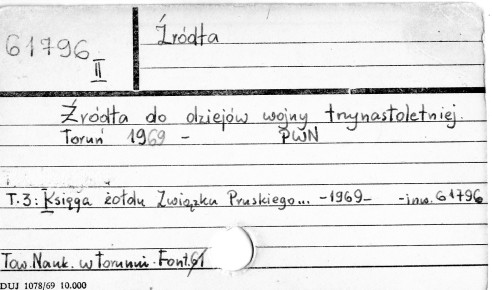 61796
II
Źródła
Źródła do dziejów wojny trzynastoletniej.
Toruń 1969 - PWN
T.3: Księga żołdu Związku Pruskiego... -1969- -inw. 61796
Tow. Nauk. w Toruniu. Font. 61
DUJ 1078/69 10.000